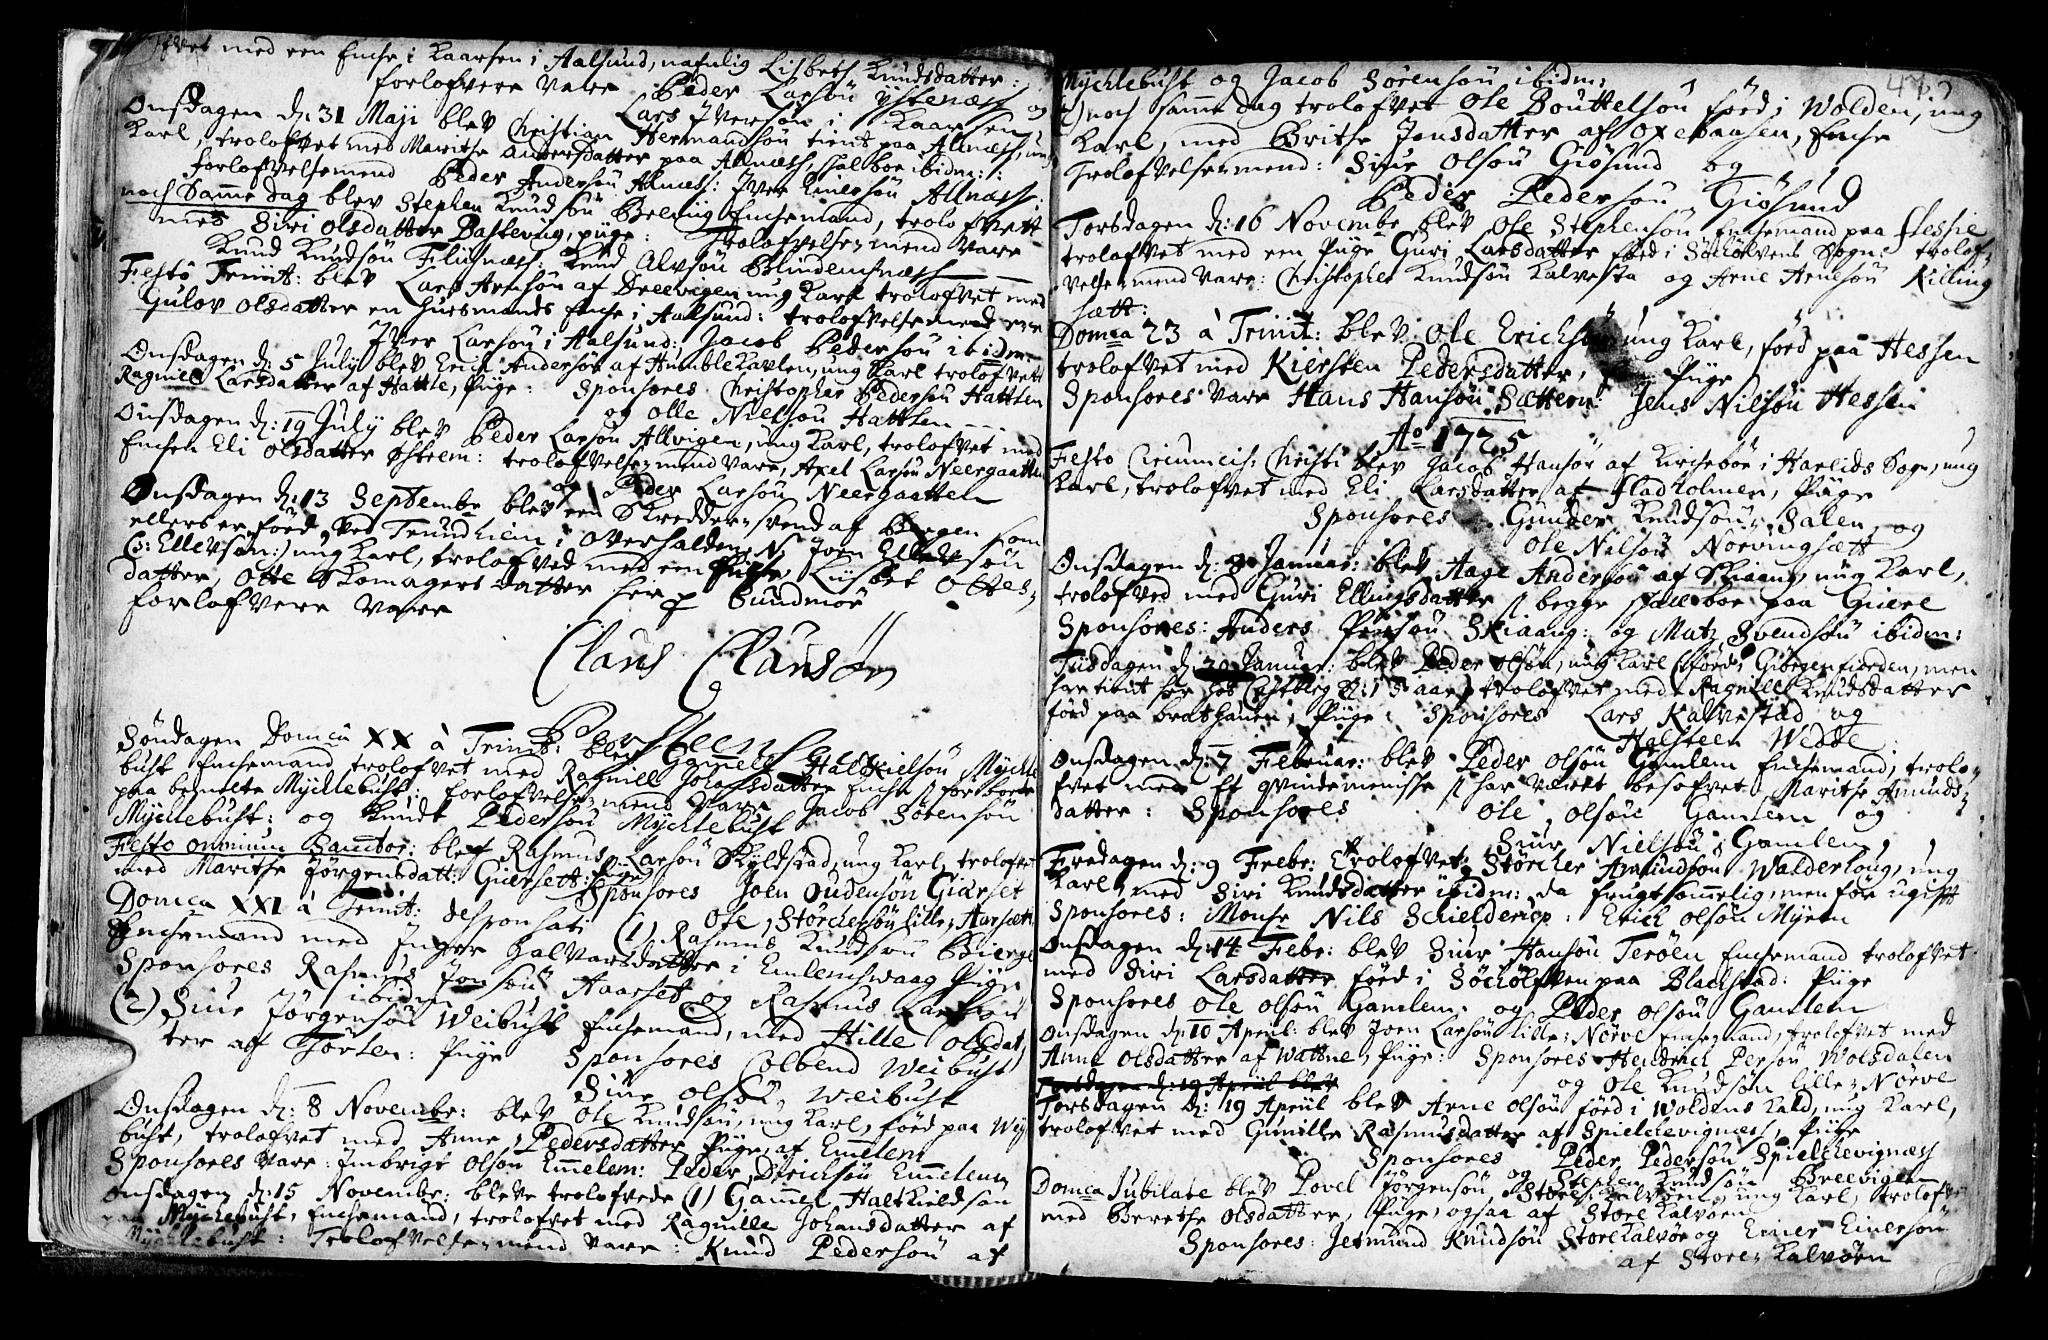 med een Encke i Kaarsen i Aalsund, nafnlig Lisbeth Knudsdatter:
forlofvere vare Peder Larsøn Ystenæss og
Lars Iversøn i Kaarsen
Onsdagen d: 31 Maji blev Christian Hermandsøn tient paa Allnæss, ung
Karl, trolofvet med Marithe Andersdatter paa Allnæss, ibidm:
forlofvelsemend Peder Andersøn Alnæss: Iver Einersøn Allnæss:
noch Samme dag blev Stephen Knudsøn Enckemand, trolofvett
med Siri Olsdatter Pastevug, pige: Trolofvelsesmend vare
Knud Knudsøn Flisnæss: Knud Alvsøn Blindemsnæss
Festo Trinit: blev Lars Arnsøn af Breevigen ung Karl trolofvet med
Gulov Olsdatter en Huusmands Encke i Aalsund: trolofvelsemend
Iver Larsøn i Aalsund: Jacob Pedersøn ibidm
Onsdagen d: 5 July blev Erich Andersøn af Humblekavlen, ung Karl trolofvet
Ragnild Larsdatter af Hattle, Pige: Sponsores Christopher Pedersøn Hattlen
og Olle Nielsøn Hattlen
Onsdagen d: 19 July blev Peder Larsøn Allvigen, ung Karl, trolofvet med
Encken Eli Olsdatter Østrem: trolofvelsesmend vare, Axel Larsøn Neergaarden
og Peder Larsøn Neergaatten
Onsdagen d: 13 Septembr blev een Skreddersvend af Bergen som
ellers er föed ved Trundhiem i Overhalden, N: Joen Ellefsøn
(ɔ: Ellevsøn:) ung Karl, trolofved med een Pige, Lisbet Ottes-
datter, Otte Skomagers datter her p Sundmör
forlofvere vare
Claus Clausøn
Söndagen Domca XX à Trinit: blev Gamel Haldkielsøn Myckle
bust Enckemand trolofvet med Ragnill Johansdatter Encke
paa bemelte Mycklebust: forlofvelsesmend vare Jacob Sörensøn
Mycklebust: og Knudt Pedersøn Mycklebust
Festo omnium Sanctor: blef Rasmus Larsøn Skyldstad, ung Karl, trolofvet
med Marithe Jörgensdatt: Giersett: Pige
Sponsores Joen Oudensøn Giærset
Ole Störckersøn lille Aarsæth
Domca XXI à Trinit: desponsati (1) Rasmus Knudsøn Bierge
Enckemand med Inger Halvarsdatter i Emlemswaag Pige
Sponsores Rasmus Jonsøn Aarset og Rasmus Larsøn
ibidem
(2) Siur Jörgensøn Weibust Enckemand, med Hille Olsdat
ter af Thorlen: Pige Sponsores Colbend Weibust
Siur Olsøn, Weibust
Onsdagen d: 8 Novembr: blev Ole Knudsøn, ung Karl, föed paa Mÿ
bust, trolofvet med Anne Pedersdatter Pige, af Emelem
Sponsores vare: Imbrigt Olsøn Emelem: Peder Dirichsøn Emelem
Onsdagen d: 15 Novembr: bleve trolofvede (1) Gammel Haltkieldsøn
paa Mycklebust, Enckemand, trolofvet med Ragnille Johansdatter af
Mycklebust: Trolofvelsesmend vare: Knud Pedersøn af
Mycklebust og Jacob Sörensøn ibidm:
2) noch samme dag trolofvet Ole Bouttelsøn föed i Wolden, ung
Karl, med Brithe Jensdatter af Oxebaasen, Encke
Trolofvelsesmend: Siur Olsøn Giösund og
Peder Pedersøn Giösund
Torsdagen d: 16 Novembr blev Ole Stephensøn Enckemand paa Flessie
trolofvet med een Pige Guri Larsdatter föed i Söckelvens Sogn: trolof-
velsesmend vare: Christopher Knudsøn Kalvesta og Arne Arnesøn Killing
sætt:
Domca 23 à Trinit: blev Ole Erichsøn ung Karl, föed paa Hessen
trolofvet med Kiersten Pedersdatter, Pige
Sponsores vare Hans Hansøn Sættern: Jens Nilsøn Hessen
Ao 1725
Festo Circumcis: Christi blev Jacob Hansøn af Kirckeböe i Hareids Sogn, ung
Karl, trolofvet med Eli Larsdatter af Fladholmen, Pige
Sponsores Gunder Knudsøn Salen og
Ole Nilsøn Norvingsætt
Onsdagen d: Januar: blev Aage Andersøn af Skiaang, ung Karl,
trolofved med Guri Ellingsdatter begge paa Giere
Sponsores: Anders Persøn Skiaang: og Matz Svendsøn ibidm:
Tiisdagen d: Januar: blev Peder Olsøn, ung Karl (föed i Giörgenfiorden, men
har tient her i aar) trolofvet med Ragnill Knudsdatter
föed paa Pige: Sponsores Lars Kalvestad og
Halsteen Wedde
Onsdagen d: 7 Februar: blev Peder Olsøn Gamlem Enckemand, trolo-
fvet med Et qvindemenisse har været besofvet Marithe Amunds-
datter: Sponsores Ole Olsøn Gamlem og
Siur Nielsøn Gamlem
Fredagen d: 9 Febr: Trolofvet Störcker Amundsøn Walderhoug, ung
Karl, med Siri Knudsdatter ibidm: da frugtsommelig, men för ugift
Sponsores: Monsr Nils Schielderop: Erich Olsøn Myren
Onsdagen d: 14 Febr: blev Siur Hansøn Teröen Enckemand trolofvet
med Siri Larsdatter föed i Söckölfven paa Blackstad: Pige
Sponsores Ole Olsøn Gamlem: og Peder Olsøn Gamlem
Onsdagen d: 10 April: blev Joen Larsøn lille-Nörve Enckemand, trolofvet med
Anne Olsdatter af Wattne, Pige: Sponsores Hendrich Persøn Wolsdalen
og Ole Knudsøn lille-Nörve
Torsdagen d: 19 Apriil blev
Torsdagen d: 19 Apriil blev Arne Olsøn föed i Woldens Kald, ung Karl,
trolofvet med Gunille Rasmusdatter af Spielckevignæss, Pige
Sponsores Peder Pedersøn Spielckevignæss
og Stephen Knudsøn Breevigen
Domca Jubilate blev Povel Jörgensøn, Store Kalvöen, ung Karl, trolofvet
med Berethe Olsdatter, Pige, ogsaa af Store Kalvöen
Sponsores: Jetmund Knudsøn Store Kalvöe og Einer Einersøn
af Store-Kalvöen